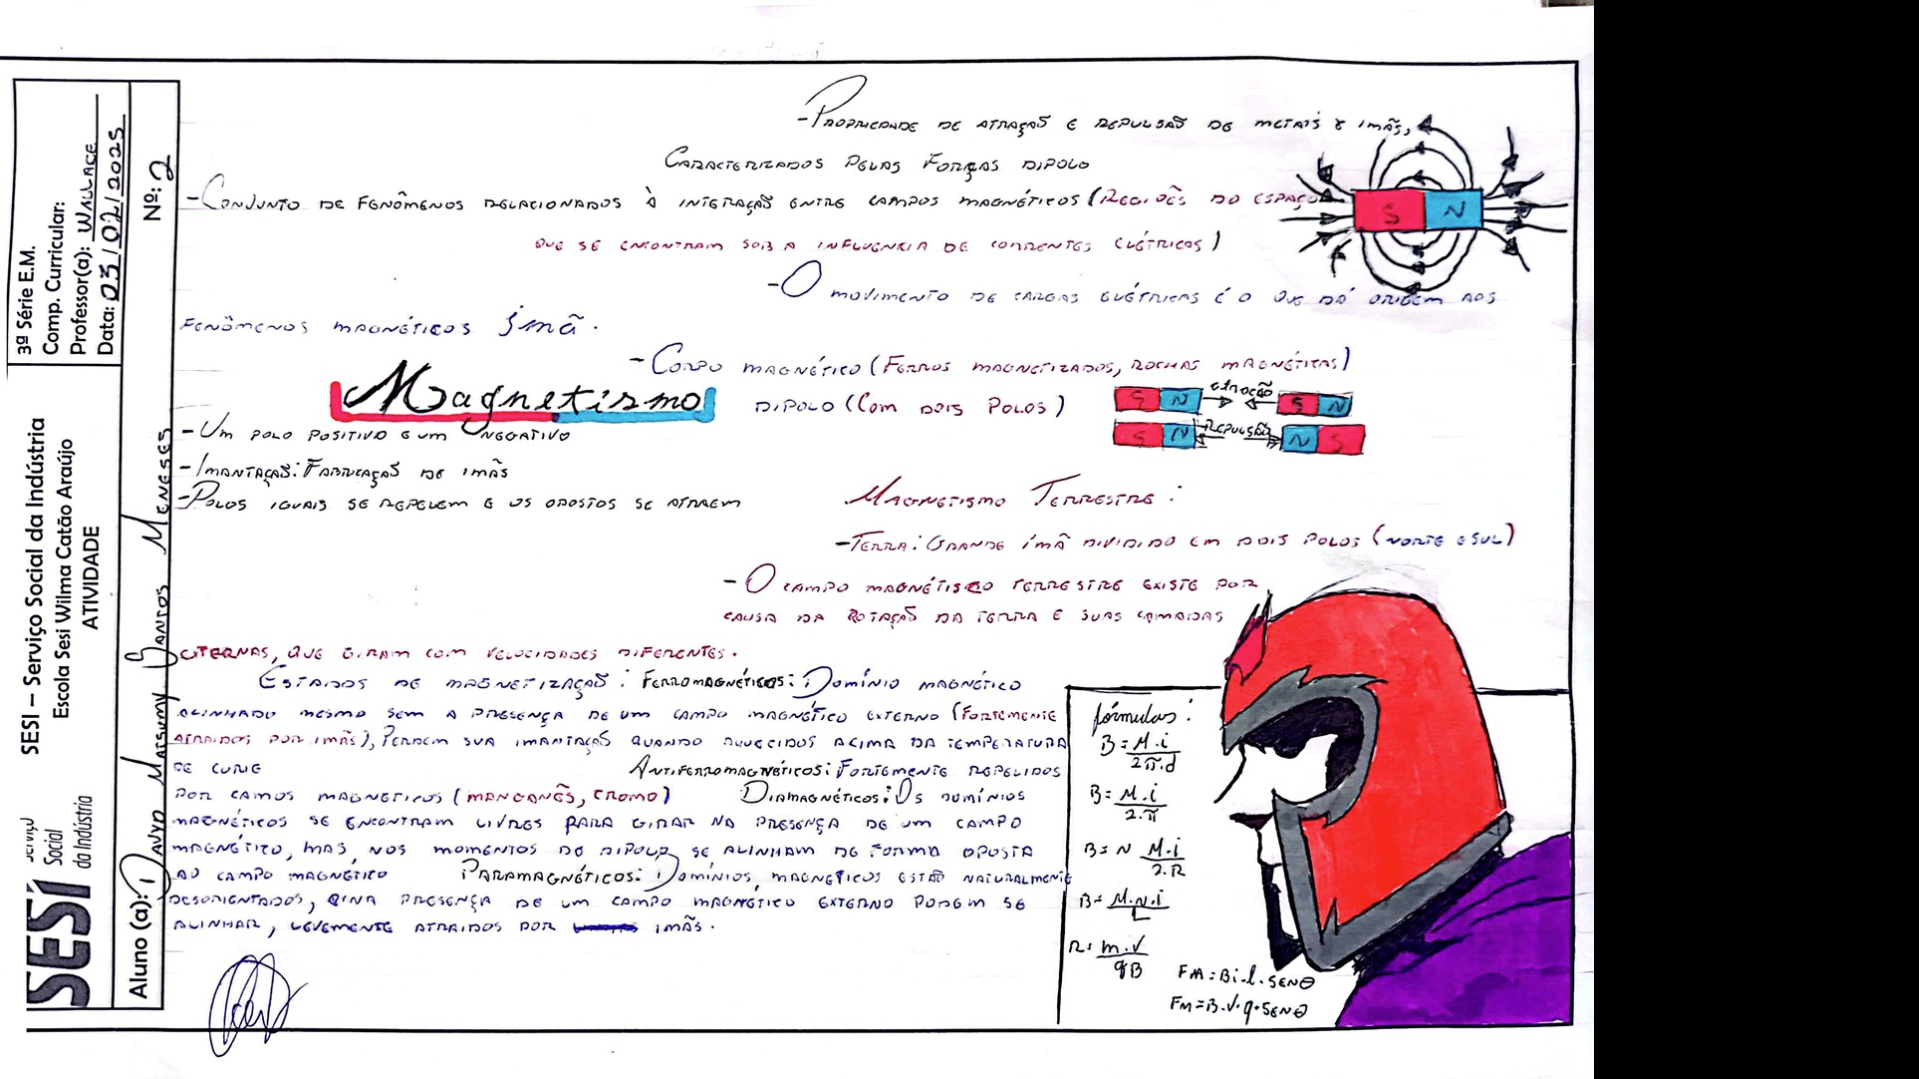 SESI – Serviço Social da Indústria
Escola Sesi Wilma Catão Araújo
ATIVIDADE
SESI
Serviço
Social
da Indústria
3ª Série E.M.
Comp. Curricular:
Professor(a): WALLACE
Data: 03/02/2025
Aluno (a): Davyd Matsumy Santos Meneses
Nº: 2
- Propriedade de atração e repulsão de metais e imãs,
Caracterizados pelas forças dipolo
- Conjunto de fenômenos relacionados à interação entre campos magnéticos (Regiões do espaço
que se encontram sob a influencia de correntes elétricos)
- O movimento de cargas elétricas é o que dá origem aos
fenômenos magnéticos imã.
- Corpo magnético (Ferros magnetizados, rochas magnéticas)
Magnetismo
dipolo (Com dois polos)
- Um polo positivo e um negativo
- Imantação: Fabricação de imãs
- Polos iguais se repelem e os opostos se atraem
S N
S N atração S N
S N Repulsão N S
Magnetismo Terrestre:
- Terra: Grande ímã dividido em dois polos (norte e sul)
- O campo magnético terrestre existe por
causa da rotação da terra e suas camadas
externas, que giram com velocidades diferentes.
Estados de magnetização: Ferromagnéticos: Domínio magnético
alinhado mesmo sem a presença de um campo magnético externo (fortemente
atraidos por imãs), perdem sua imantação quando aquecidos acima da temperatura
de curie Antiferromagnéticos: Fortemente repelidos
por camos magneticos (manganês, cromo) Diamagnéticos: Os domínios
magnéticos se encontram livres para girar na presença de um campo
magnético, mas, nos momentos de dipolo, se alinham de forma oposta
ao campo magnetico Paramagnéticos: Domínios, magneticos estão naturalmente
desorientados, e na presença de um campo magnetico externo podem se
alinhar, levemente atraidos por imãs.
fórmulas:
B = M.i / 2π.d
B = M.i / 2.π
B = N M.i / 2.R
B = M.N.i / L
R = m.V / qB
FM = B.i.l.SENθ
FM = B.V.q.SENθ